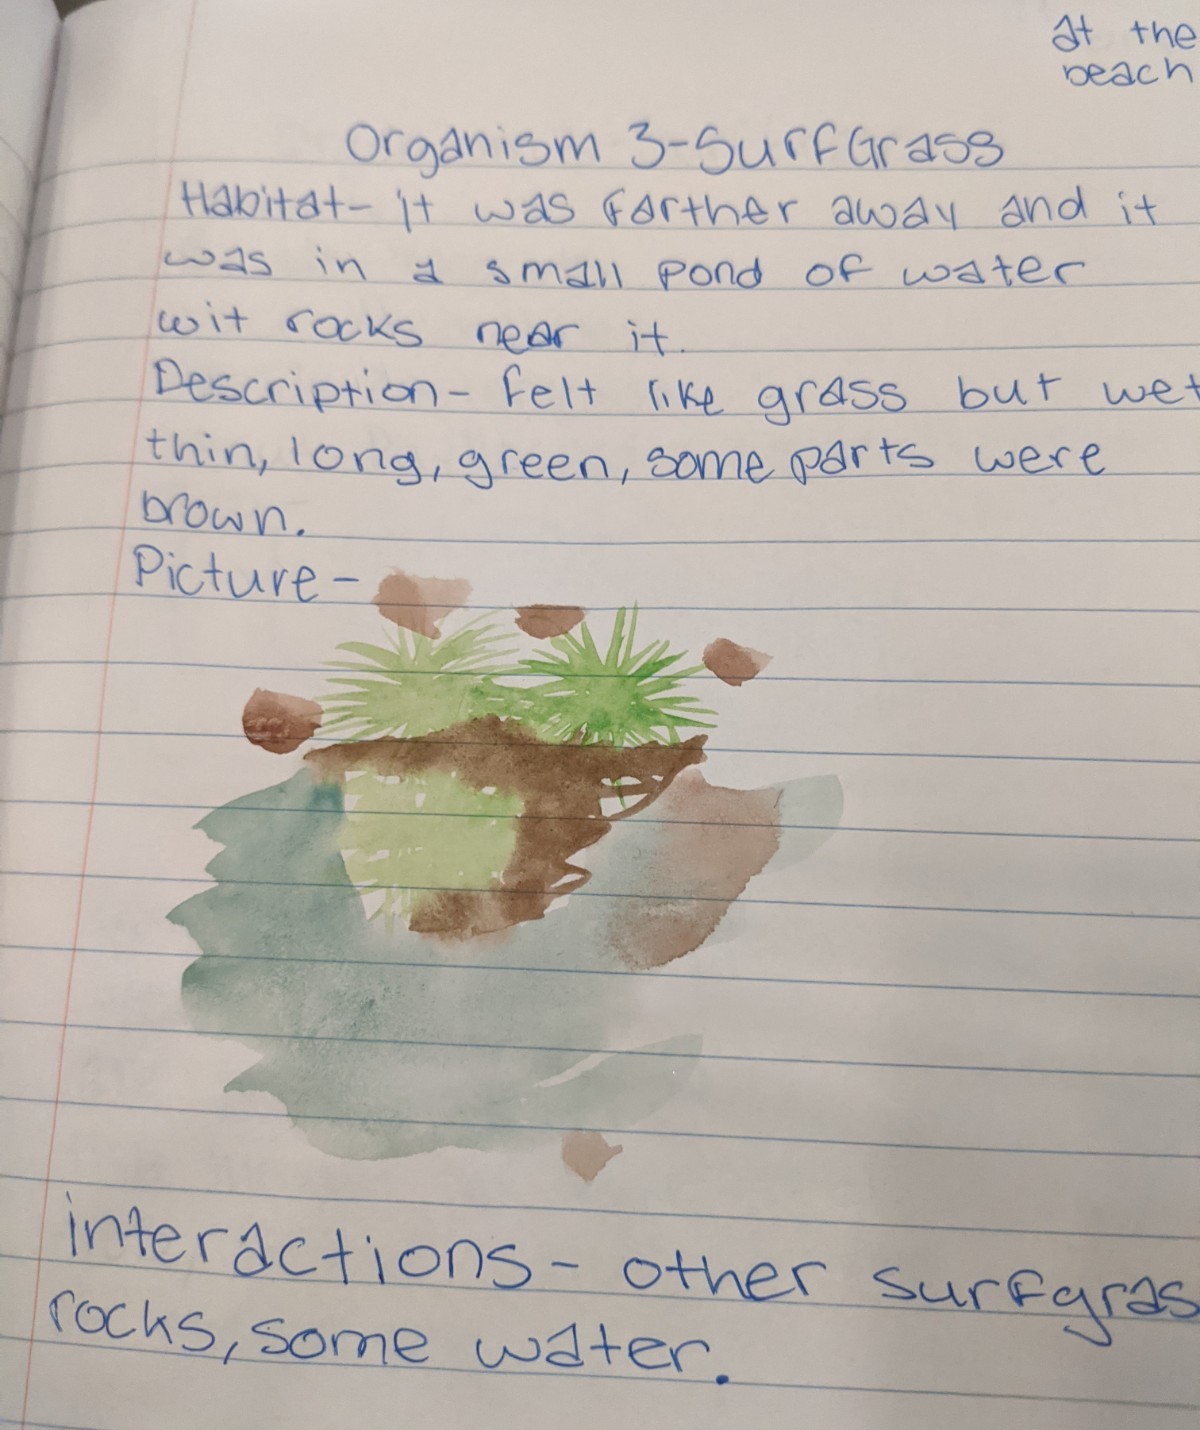 at the
beach
Organism 3-SurfGrass
Habitat- it was farther away and it
was in a small pond of water
wit rocks near it.
Description- felt like grass but wet
thin, long, green, some parts were
brown.
Picture-
interactions- other surfgras
rocks, some water.